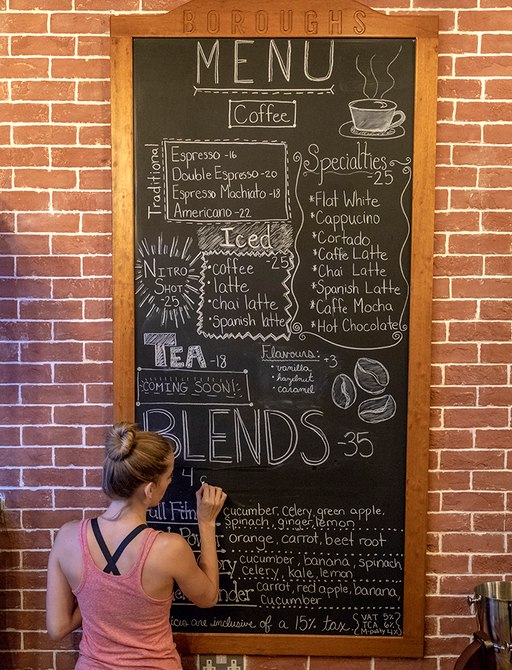 BOROUGHS
MENU
Coffee
Traditional
Espresso -16
Double Espresso -20
Espresso Machiato -18
Americano -22
Specialties
-25
*Flat White
*Cappucino
*Cortado
*Caffe Latte
*Chai Latte
*Spanish Latte
*Caffe Mocha
*Hot Chocolate
Iced
-25
•coffee
•latte
•chai latte
•spanish latte
NITRO
SHOT
-25
TEA -18
COMING SOON!
Flavours: +3
•vanilla
•hazelnut
•caramel
BLENDS -35
4
cucumber, celery, green apple,
spinach, ginger, lemon
orange, carrot, beet root
cucumber, banana, spinach
celery, kale, lemon
carrot, red apple, banana,
cucumber
are inclusive of a 15% tax
VAT 5%
TCA 6%
4%